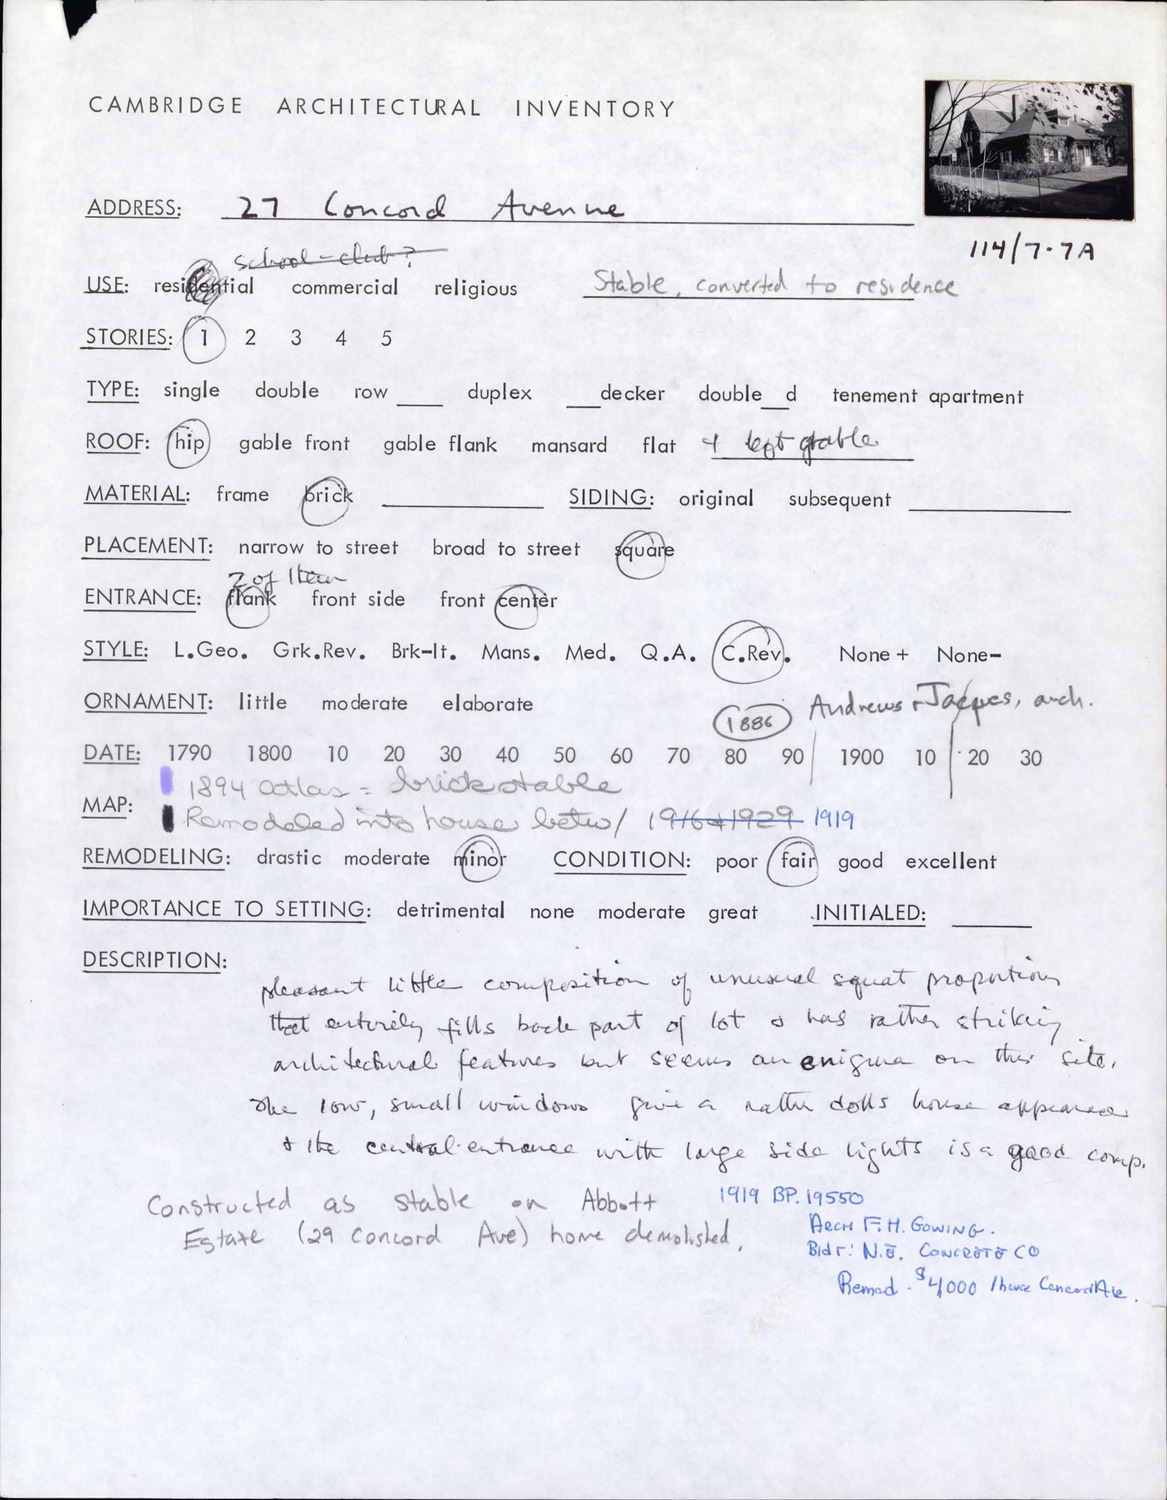 CAMBRIDGE ARCHITECTURAL INVENTORY
ADDRESS: 27 Concord Avenue
114/7-7A
school-club?
USE: residential commercial religious Stable, converted to residence
STORIES: 1 2 3 4 5
TYPE: single double row ___ duplex ___decker double__d tenement apartment
ROOF: hip gable front gable flank mansard flat + gable
MATERIAL: frame brick ___ SIDING: original subsequent ___
PLACEMENT: narrow to street broad to street square
2 of them
ENTRANCE: flank front side front center
STYLE: L.Geo. Grk.Rev. Brk-It. Mans. Med. Q.A. C.Rev. None+ None-
ORNAMENT: little moderate elaborate 1886 Andrews + Jacques, arch.
DATE: 1790 1800 10 20 30 40 50 60 70 80 90 1900 10 20 30
1894 atlas = brick stable
MAP: Remodeled into house betw/ 1916 + 1929 1919
REMODELING: drastic moderate minor CONDITION: poor fair good excellent
IMPORTANCE TO SETTING: detrimental none moderate great INITIALED: ___
DESCRIPTION:
pleasant little composition of unusual squat proportions
that entirely fills back part of lot & has rather striking
architectural features but seems an enigma on this site.
The low, small windows give a rather dolls house appearance
& the central entrance with large side lights is a good comp.
Constructed as stable on Abbott
Estate (29 Concord Ave) home demolished.
1919 BP. 19550
Arch F.H. GOWING.
Bldr: N.E. CONCRETE CO
Remod. $4,000 1 house Concord Ave.